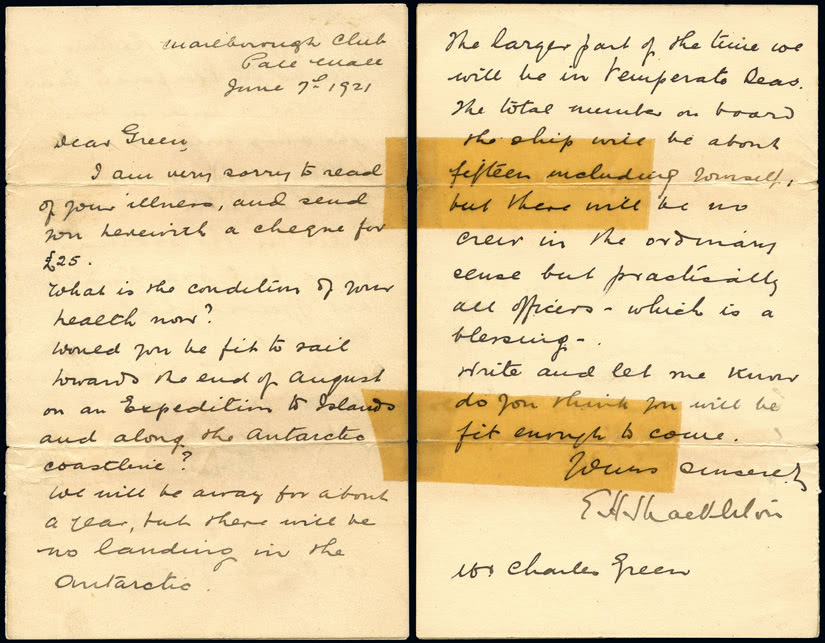 Marlborough Club
Pall Mall
June 7th 1921
Dear Green,
I am very sorry to read
of your illness, and send
you herewith a cheque for
£25.
What is the condition of your
health now?
Would you be fit to sail
towards the end of August
on an Expedition to Islands
and along the Antarctic
coastline?
We will be away for about
a year, but there will be
no landing in the
Antarctic.
The larger part of the time we
will be in Temperate Seas.
The total number on board
the ship will be about
fifteen including yourself,
but there will be no
crew in the ordinary
sense but practically
all officers - which is a
blessing -.
Write and let me know
do you think you will be
fit enough to come.
Yours sincerely
E H Shackleton
Mr Charles Green